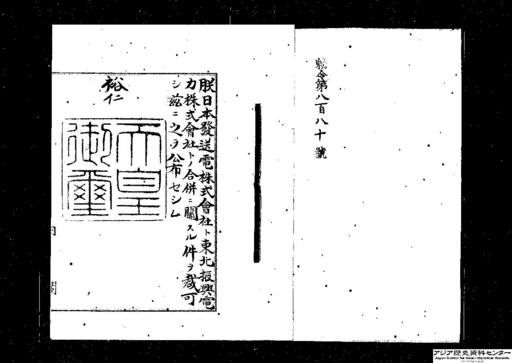 勅令第八百八十號
朕日本發送電株式會社ト東北振興電
力株式會社トノ合併ニ關スル件ヲ裁可
シ茲ニ之ヲ公布セシム
裕仁
天皇
御璽
内閣
アジア歴史資料センター
Japan Center for Asian Historical Records